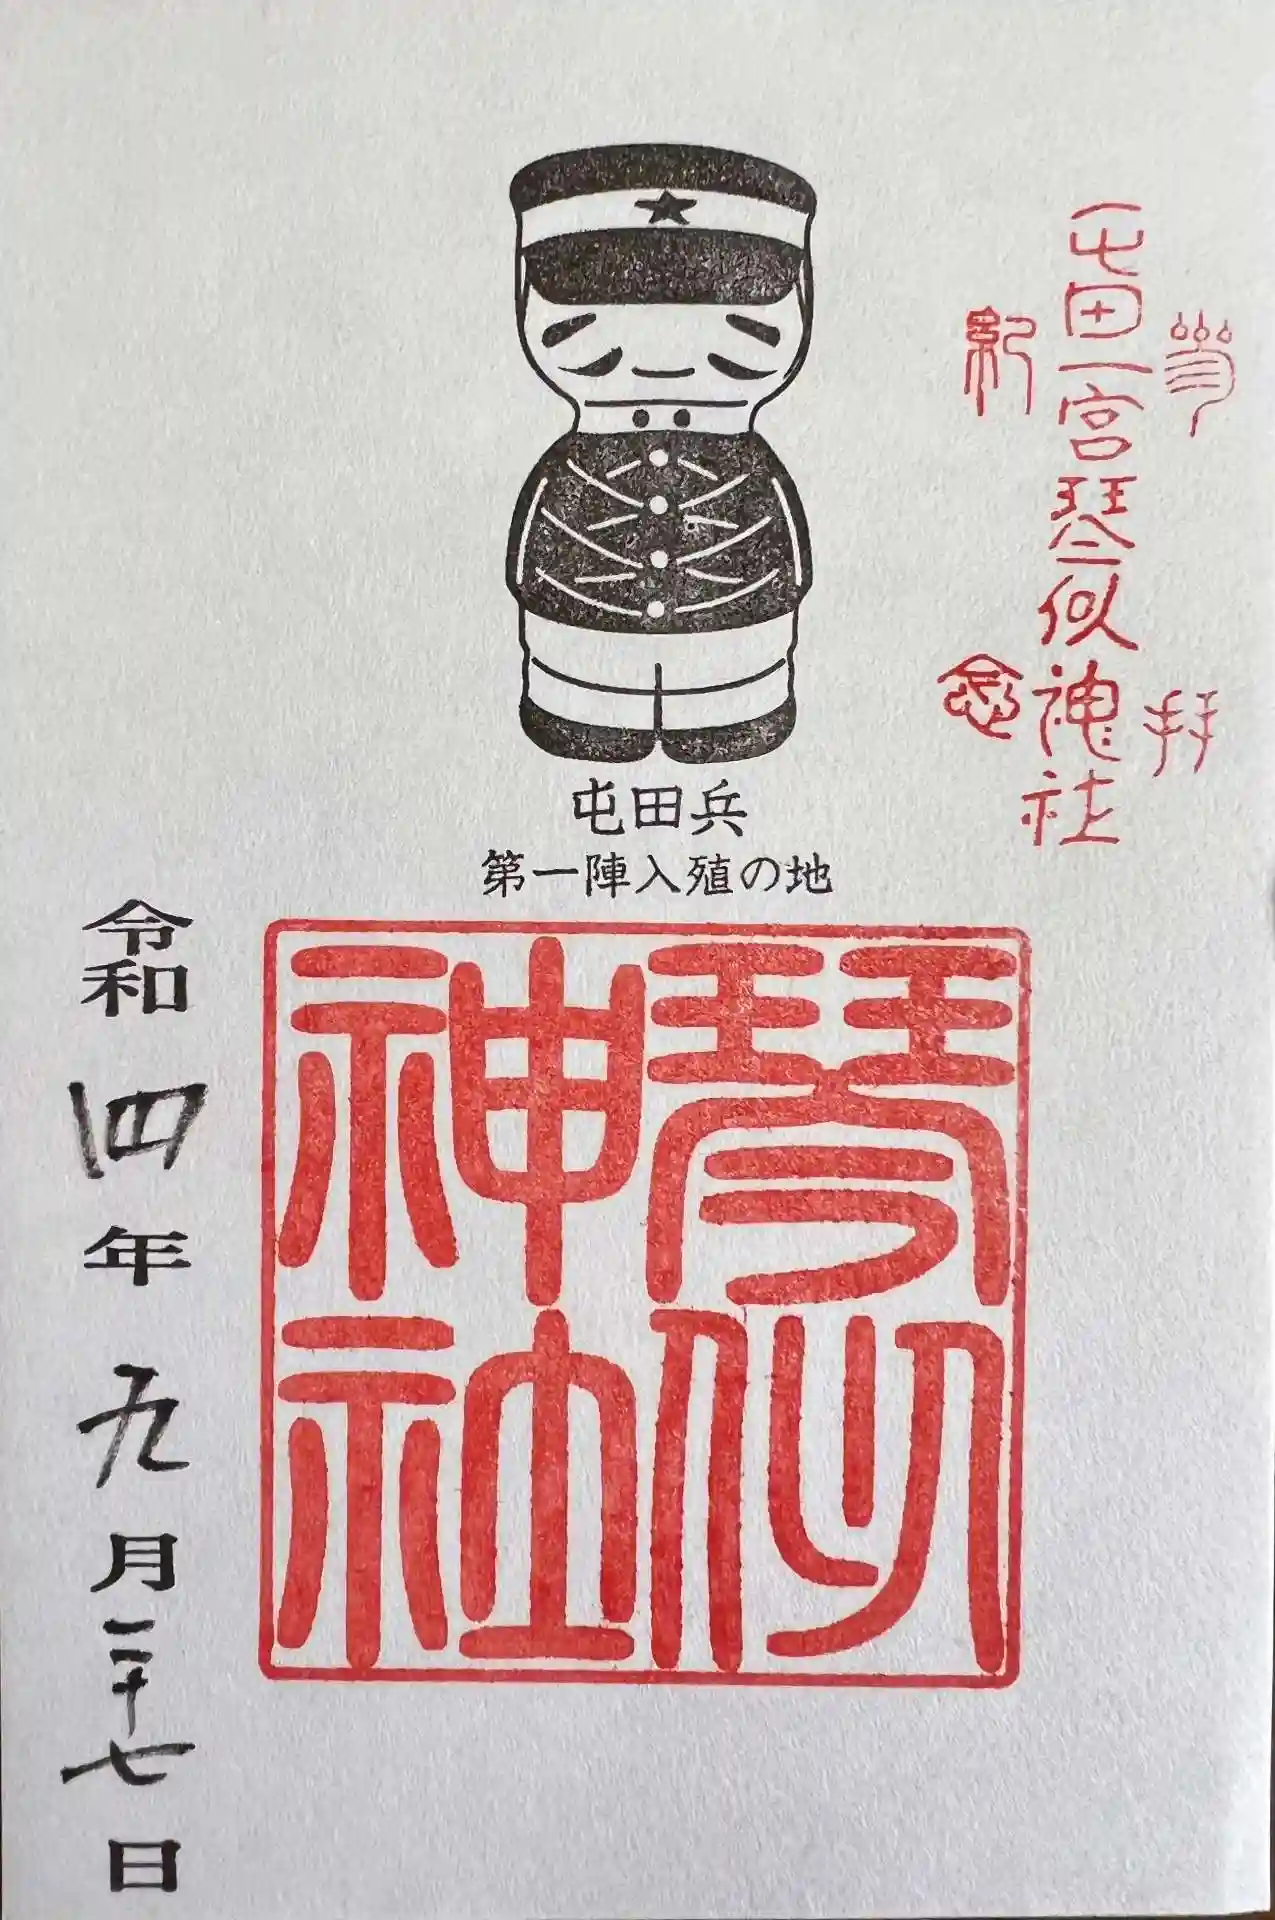 参拝
屯田一宮琴似神社
紀念
屯田兵
第一陣入殖の地
琴似
神社
令和四年九月二十七日